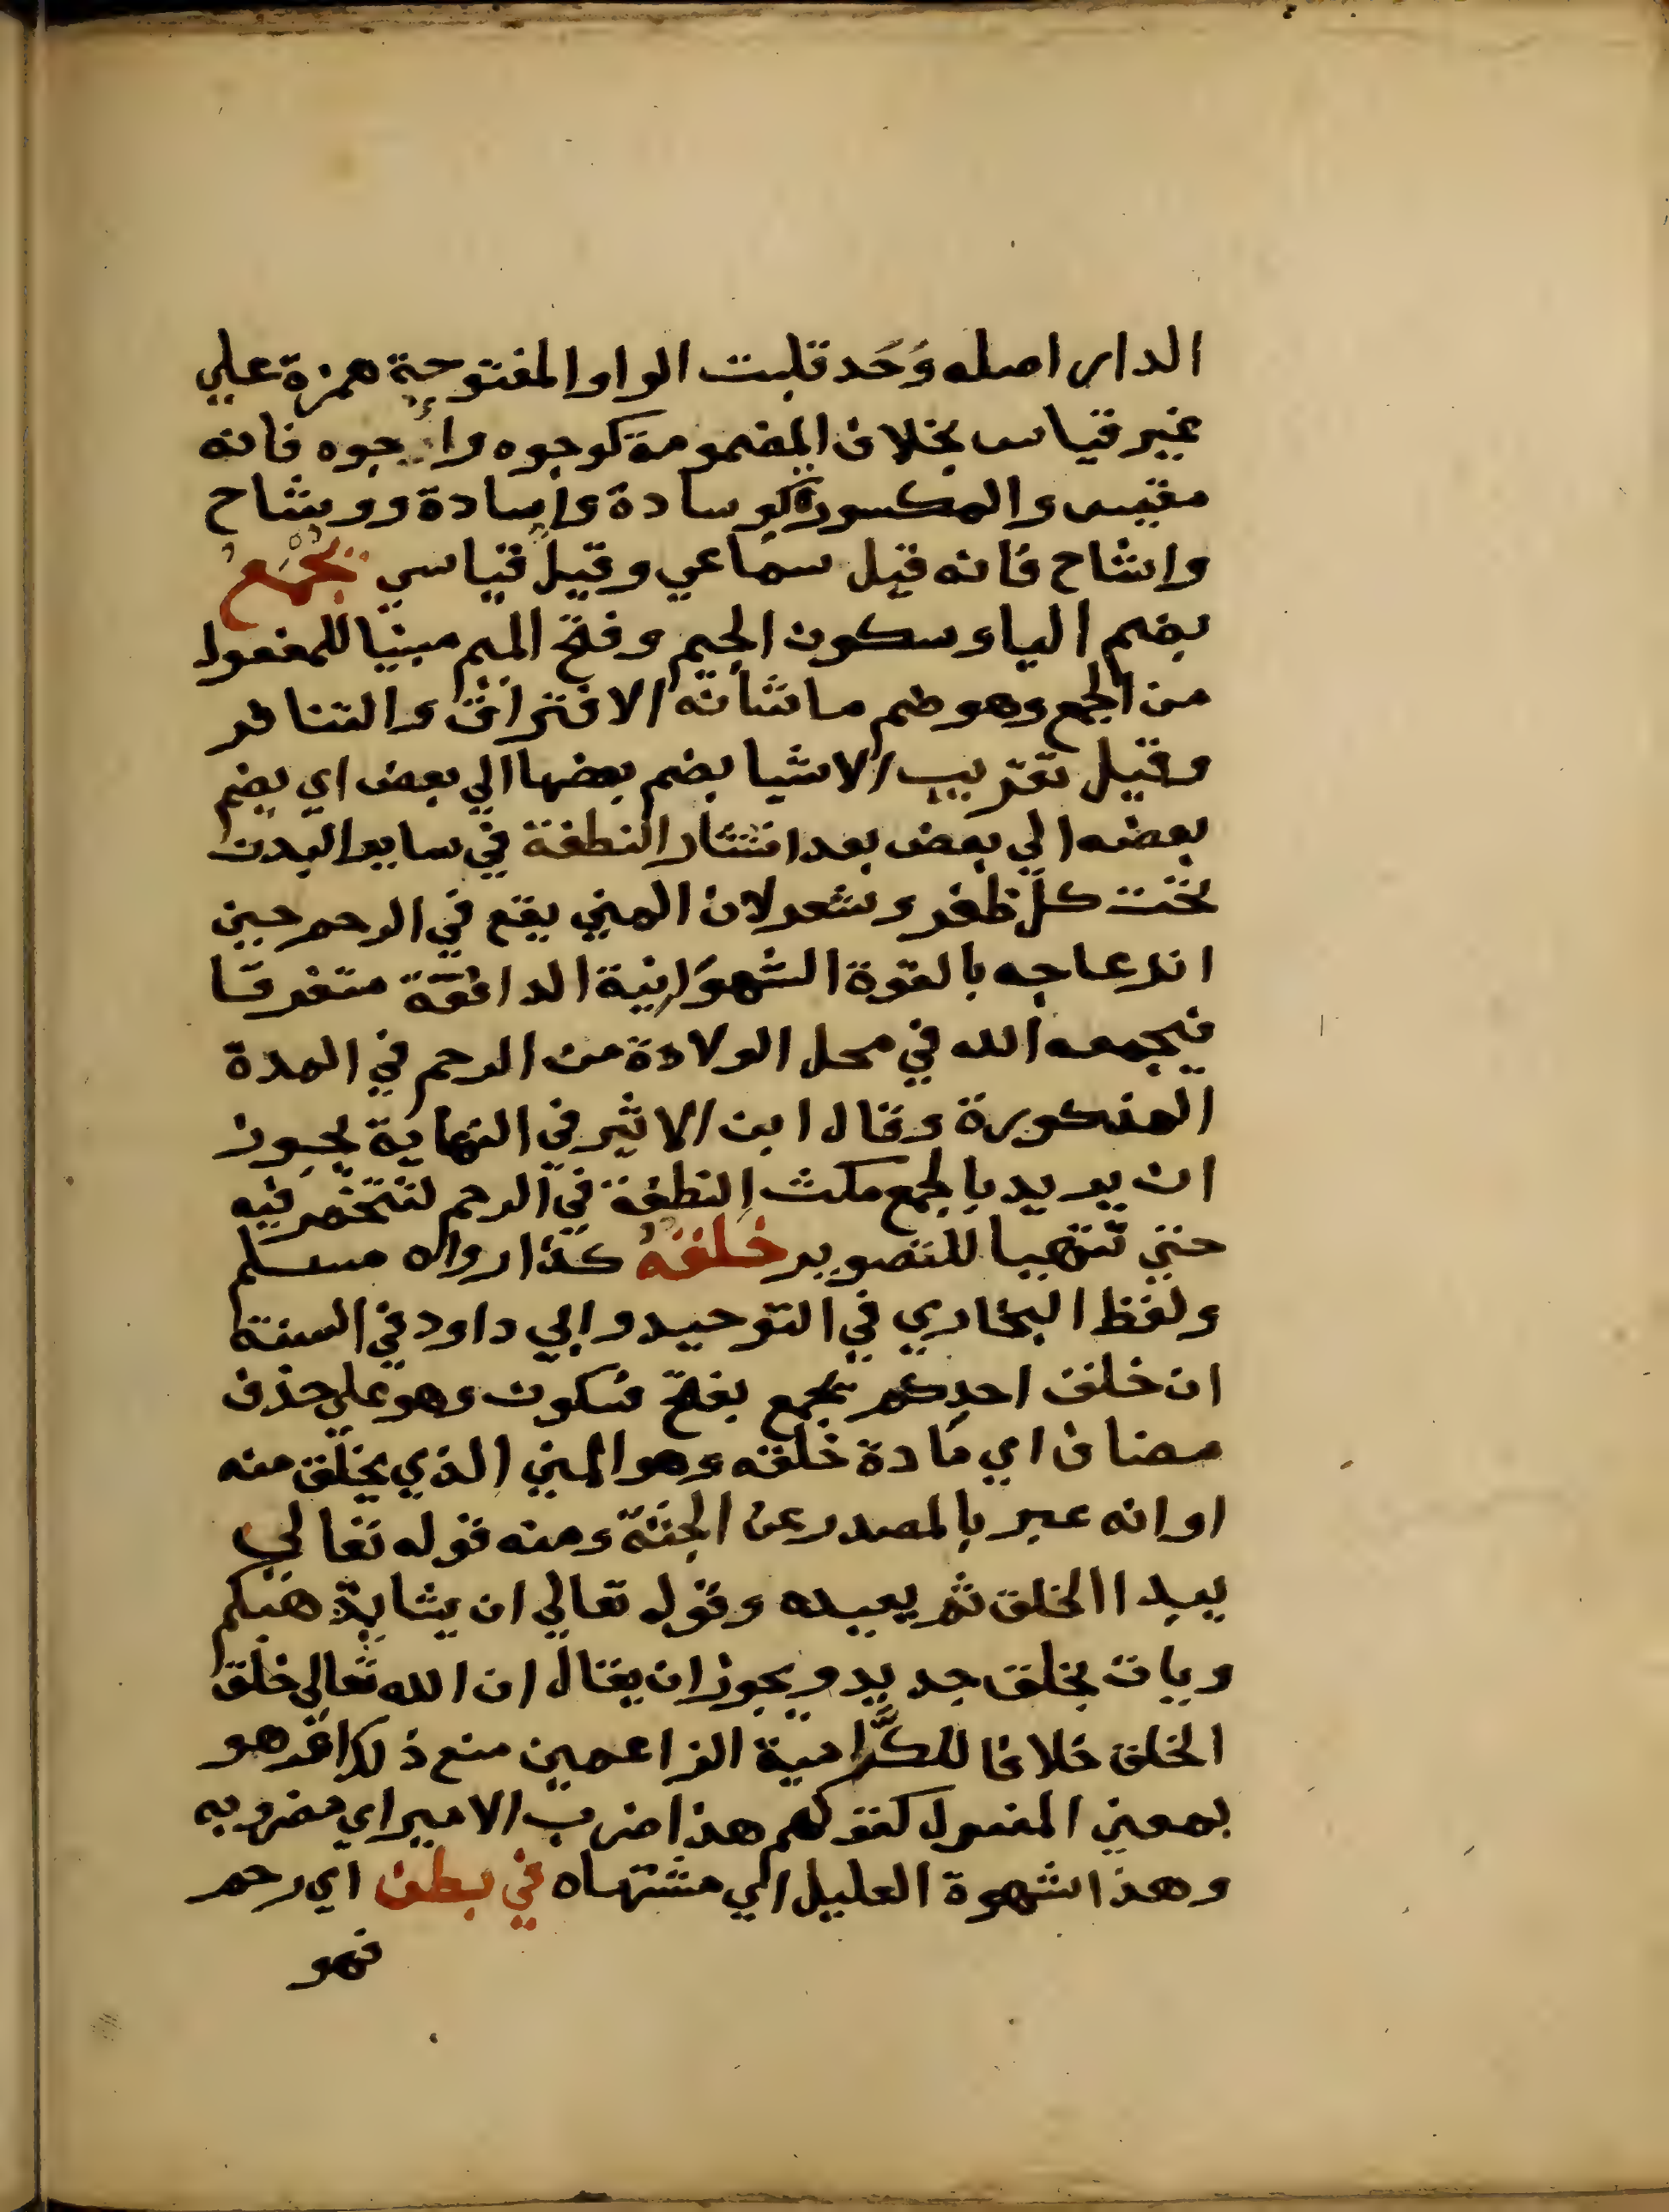 الدار اصله وَحَد قلبت الواو المفتوحة همزة علي
غير قياس بخلاف المضمومة كوجوه وأُجوه فانه
مقيس والمكسورة كوسادة وإسادة ووشاح
واشاح فانه قيل سماعي وقيل قياسي يُجْمَعُ
بضم الياء وسكون الجيم وفتح الميم مبنيا للمفعول
من الجمع وهو ضم ما شأنه الافتراق والتنافر
وقيل تقريب الاشيا بضم بعضها الي بعض اي يضم
بعضه الي بعض بعد انتشار النطفة في ساير البدن
تحت كل ظفر وشعر لان المني يقع في الرحم حين
انزعاجه بالقوة الشهوانية الدافقة متفرقا
فيجمعه الله في محل الولادة من الرحم في المدة
المذكورة وقال ابن الاثير في النهاية يجوز
ان يريد بالجمع مكث النطفة في الرحم لتتخمر فيه
حتي تتهيا للتصوير خلقهُ كذا رواه مسلم
ولفظ البخاري في التوحيد وابي داود في السنة
ان خلق احدكم يجمع بفتح فسكون وهو علي حذف
مضاف اي مادة خلقه وهو المني الذي يخلق منه
او انه عبر بالمصدر عن الجثة ومنه قوله تعالي
يبدا الخلق ثم يعيده وقوله تعالي ان يشا يذهبكم
ويات بخلق جديد ويجوز ان يقال ان الله تعالي خلق
الخلق خلافا للكرَّامية الزاعمين منع ذلك اذ هو
بمعني المفعول كقولهم هذا ضرب الامير اي مضروبه
وهذا شهوة العليل اي مشتهاه في بطن اي رحم
فهو